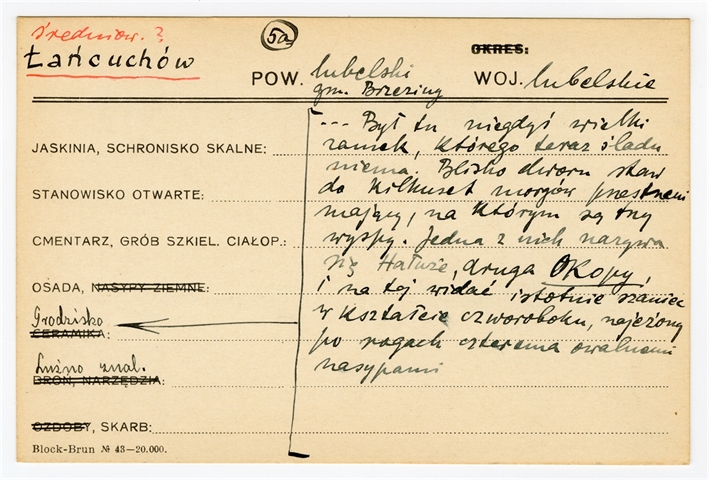 średniow. ?
5a
Łańcuchów
OKRES:
POW. lubelski
gm. Brzeziny
WOJ. lubelskie
JASKINIA, SCHRONISKO SKALNE:
STANOWISKO OTWARTE:
CMENTARZ, GRÓB SZKIEL. CIAŁOP.:
OSADA, NASYPY ZIEMNE:
Grodzisko
CERAMIKA:
Luźno znal.
BROŃ, NARZĘDZIA:
OZDOBY, SKARB:
Block-Brun № 43—20.000.
--- Był tu niegdyś wielki
zamek, którego teraz śladu
niema. Blisko dworu staw
do kilkuset morgów przestrzeni
mający, na którym są trzy
wyspy. Jedna z nich nazywa
się Hałuże, druga Okopy,
i na tej widać istotnie szaniec
w kształcie czworoboku, najeżony
po rogach czterema owalnemi
nasypami